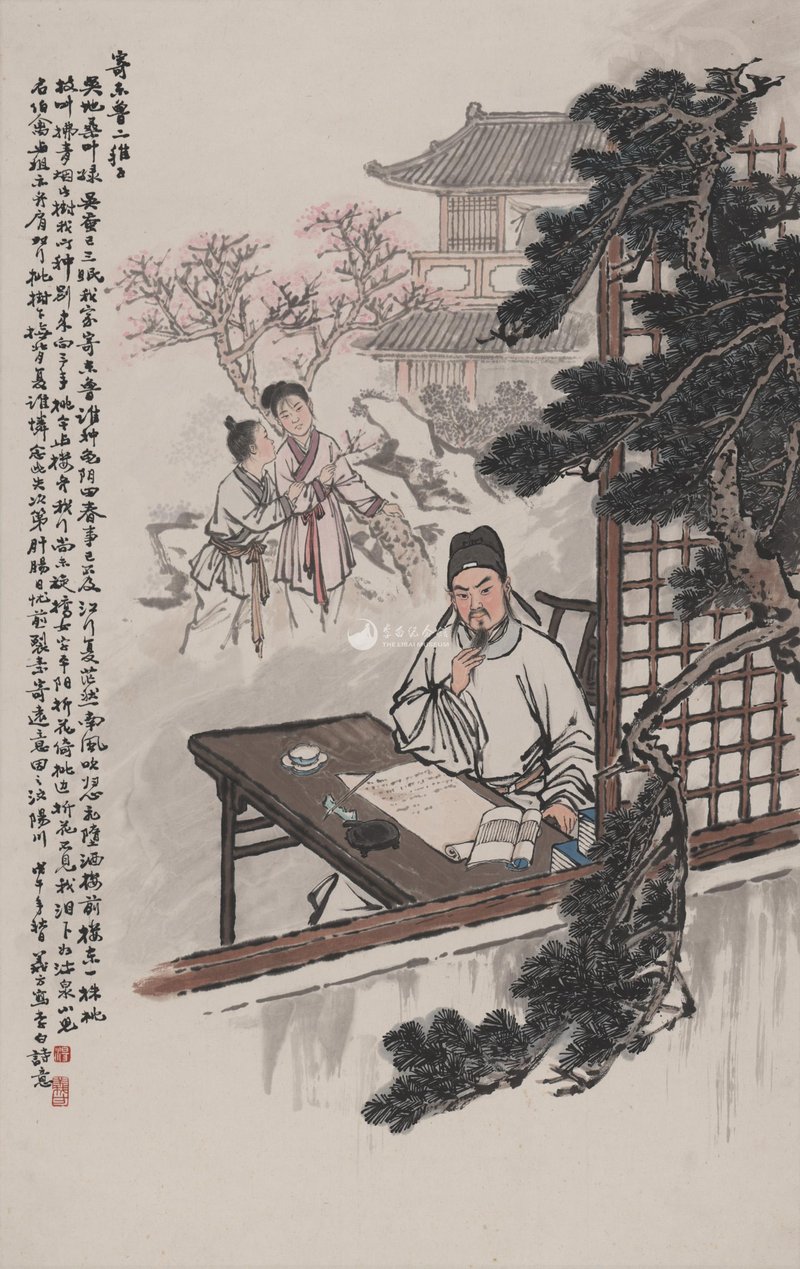 寄东魯二稚子
吳地桑叶绿吳蚕已三眠我家寄东魯谁种龟阴田春事已不及江行夏茫然南風吹归心飞堕酒樓前樓东一株桃
枝叶拂青烟此樹我所种别来向三年桃今与樓齐我行尚未旋嬌女字平阳折花倚桃边折花不见我泪下如流泉小児
名伯禽与姐亦并肩双行桃樹下抚背复谁憐念此失次第肝腸日忧煎裂素寄遠意因之汶陽川 戊午年 義方寫李白詩意
李白纪念馆
THE LIBAI MUSEUM